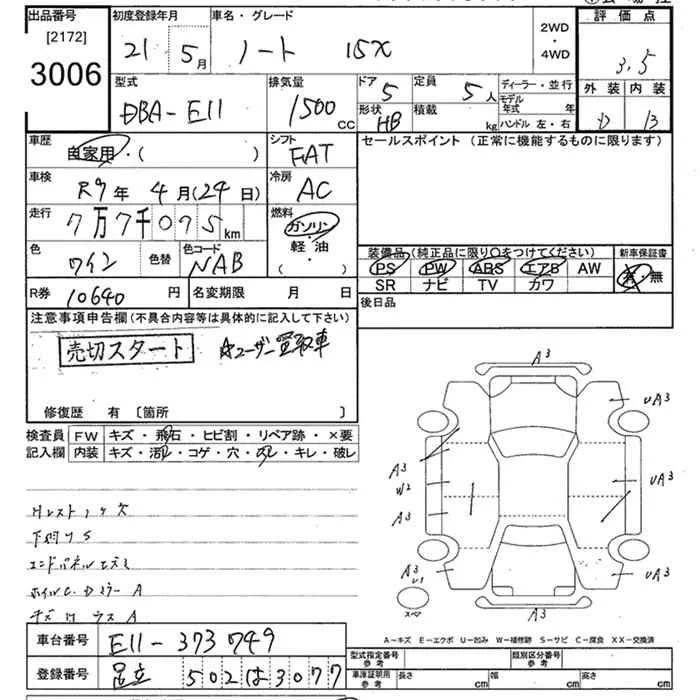 出品番号 初度登録年月 車名・グレード 2WD・4WD 評価点
[2172]
3006
21 5月 ノート 15X 3.5
型式 排気量 ドア 5 定員 5人 ディーラー・並行 外装 内装
DBA-E11 1500cc 形状 HB 積載 kg モデル年式 年 ハンドル 左・右 D B
車歴 自家用・( ) シフト FAT セールスポイント (正常に機能するものに限ります)
車検 R9年4月(24日) 冷房 AC
走行 7万7千075km 燃料 ガソリン・軽・油・( )
色 ワイン 色替 色コード NAB
装備品(純正品に限り〇をつけてください) 新車保証書
PS PW ABS エアB AW 有・無
SR ナビ TV カワ
R券 10640円 名変期限 月 日 後日品
注意事項申告欄(不具合内容等は具体的に記入して下さい)
売切スタート ☆ユーザー買取車
修復歴 有 〔箇所 〕
検査員 FW キズ・飛石・ヒビ割・リペア跡・×要
記入欄 内装 キズ・汚レ・コゲ・穴・スレ・キレ・破レ
A3
UA3
A3
W2
A3
UA3
A3
U1
UA3
スペア
A3
下廻りS
エンドパネルエクボ
A-キズ E-エクボ U-凹み W-補修跡 S-サビ C-腐食 XX-交換済
車台番号 E11-373749
型式指定番号 参考 類別区分番号 参考
登録番号 足立 502は3077
車庫証明用 参考 長さ cm 幅 cm 高さ cm